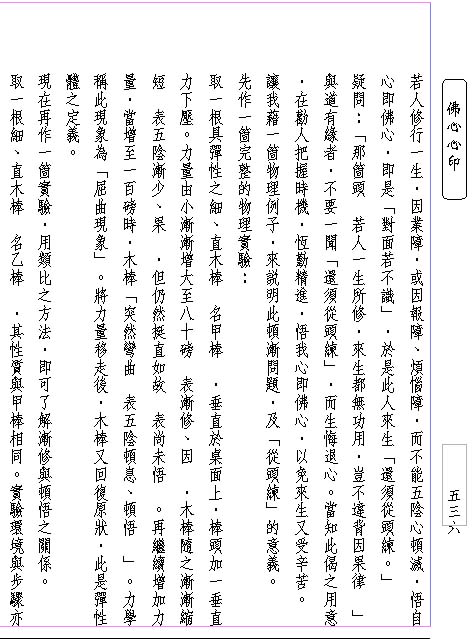 佛心心印
若人修行一生，因業障，或因報障、煩惱障，而不能五陰心頓滅，悟自
心即佛心，即是「對面若不識」，於是此人來生「還須從頭練。」
疑問：「那箇頭　若人一生所修，來生都無功用，豈不違背因果律　」
與道有緣者，不要一聞「還須從頭練」，而生悔退心。當知此偈之用意
，在勸人把握時機，恆勤精進，悟我心即佛心，以免來生又受辛苦。
讓我藉一箇物理例子，來說明此頓漸問題，及「從頭練」的意義。
先作一箇完整的物理實驗：
取一根具彈性之細、直木棒　名甲棒　，垂直於桌面上，棒頭加一垂直
力下壓。力量由小漸漸增大至八十磅　表漸修、因　，木棒隨之漸漸縮
短　表五陰漸少、果　，但仍然挺直如故　表尚未悟　。再繼續增加力
量，當增至一百磅時，木棒「突然彎曲　表五陰頓息、頓悟　」。力學
稱此現象為「屈曲現象」。將力量移走後，木棒又回復原狀，此是彈性
體之定義。
現在再作一箇實驗，用類比之方法，即可了解漸修與頓悟之關係。
取一根細、直木棒　名乙棒　，其性質與甲棒相同。實驗環境與步驟亦
五三六